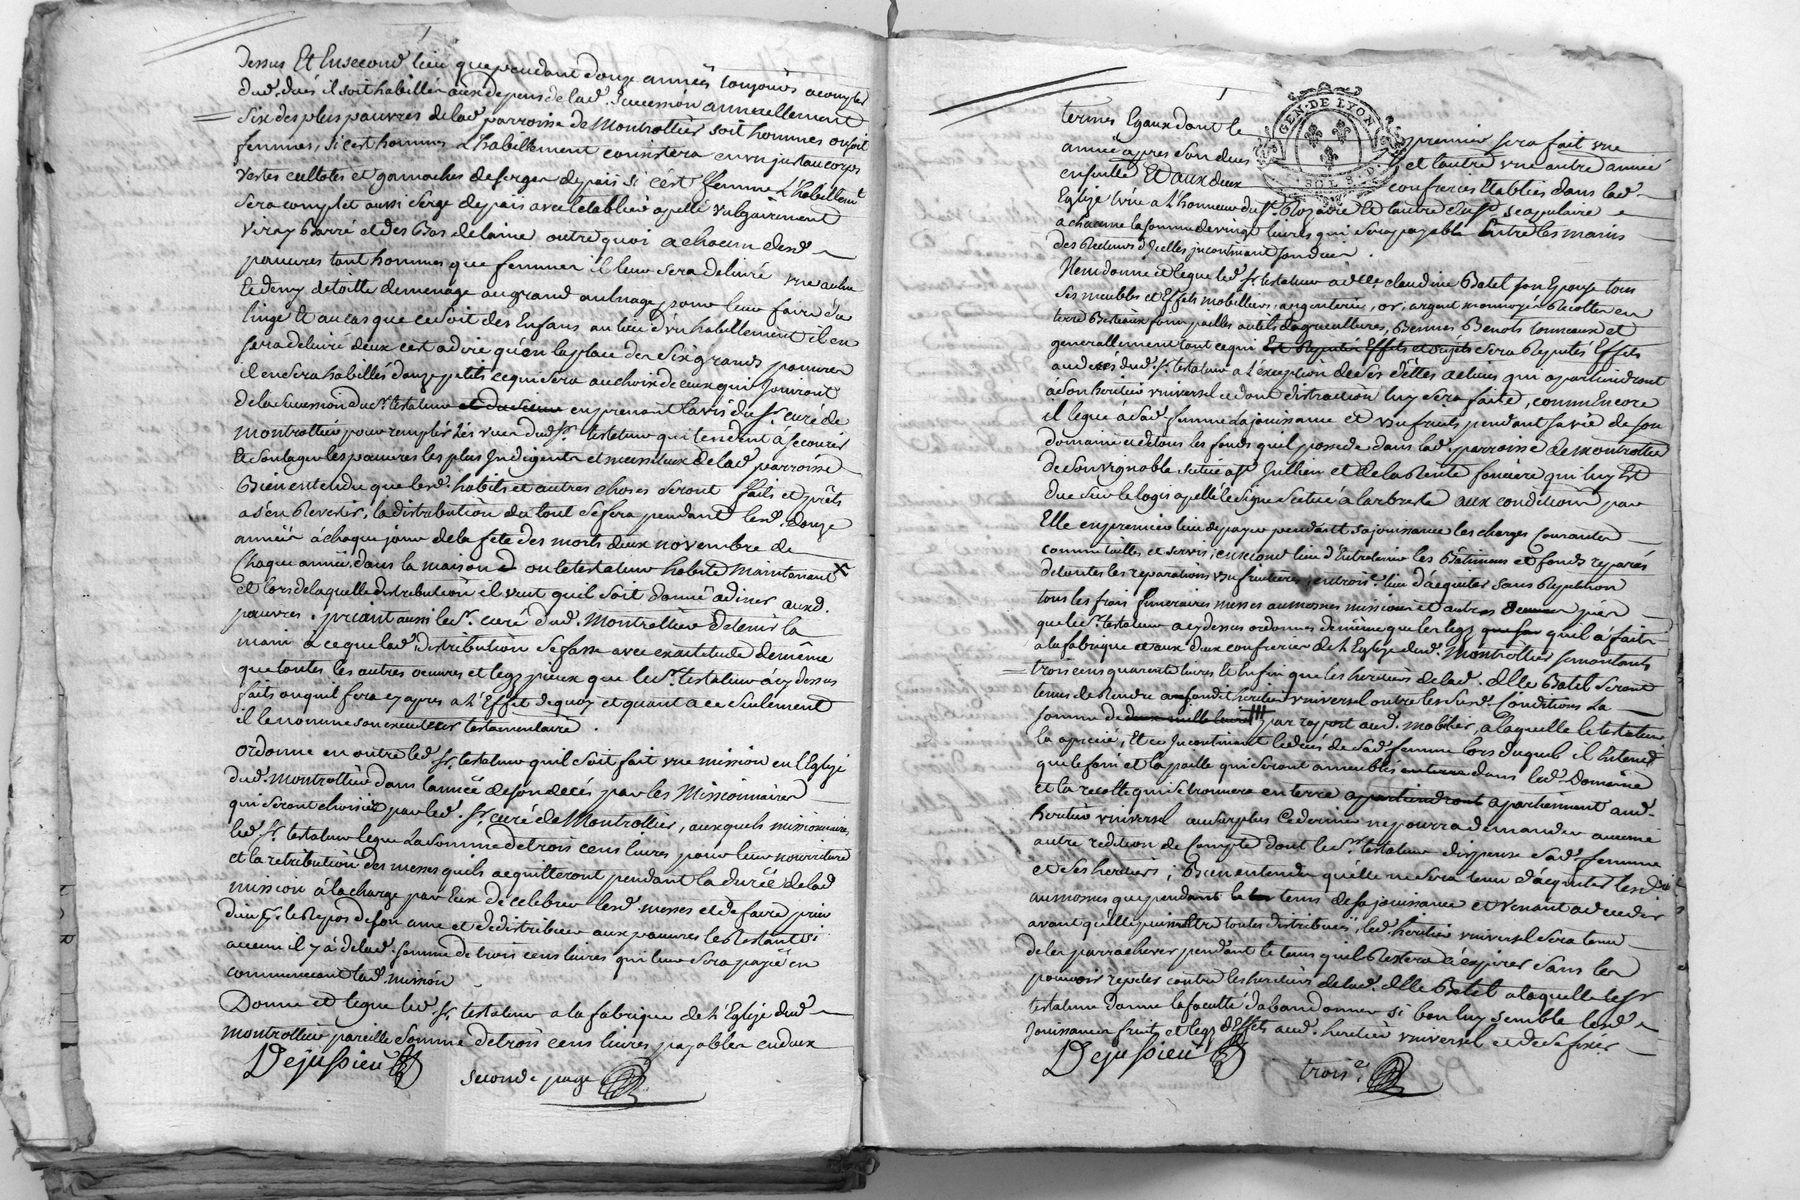 dessus Et Ensecond lieu que pendant douze années toujours acompter
dud. dués il soit habillé aux depens de lad. succession annuellement
Six des plus pauvres de lad. parroisse de Montrottier soit hommes ou soit
femmes, si c'est hommes L'habillement consistera en un justaucorps
vestes cullotes et gamaches de serge de païs si c'est femme L'habillemt
Sera complet aussi serge de païs avec le tablier apellé vulgairement
barré et des Bas de laine outre quoi a chacun desd.
pauvres tant hommes que femmes il leur sera delivré une aulne
Et demy de toille de menage au grand aulnage pour leur faire du
linge Et au cas que ce soit des Enfans au lieu d'un habillement il en
sera delivré deux c'est a dire qu'en la place de Six grands pauvres
il en sera habillés douze petits ce qui sera au choix de ceux qui jouiront
de la succession du sr. testateur en prenant l'avis du sr. curé de
Montrottier pour remplir les vues dud. sr. testateur qui tendent à secourir
Et soulager les pauvres les plus Indigents et de lad. parroisse
Bien entendu que lesd. habits et autres choses seront faits et prêts
a s'en Revetir, la distribution du tout se fera pendant lesd. douze
années à chaque jour de la fete des morts deux novembre de
Chaque année, dans la maison ou le testateur habite Maintenant x
et lors de laquelle distribution il veut quil soit donné a diner auxd.
pauvres, priant aussi le sr. curé dud. Montrottier de tenir la
main a ce que lad. distribution se fasse avec exactitude de même
que toutes les autres oeuvres et legs pieux que le sr. testateur a cy dessus
faits ou quil fera cy apres a L'Effet de quoy et quant a ce seulement
il le nomme son executeur testamentaire.
Ordonne en outre led. sr. testateur quil soit fait une mission en L'Eglize
dud. Montrottier dans l'année de son decés par les Missionnaires
qui seront choisis par led. sr. curé de Montrottier, auxquels missionnaires,
led. sr. testateur legue La somme de trois cens livres pour leur nourriture
et la retribution des messes quils acquitteront pendant la durée de lad.
mission à la charge par Eux de celebrer lesd. messes et de faire prier
dieu pr. le Repos de son ame et de distribuer aux pauvres le Restant si
aucun il y a de lad. somme de trois cens livres qui leur sera payée en
commencant lad. mission
Donne et legue led. sr. testateur a la fabrique de L'Eglize dud.
Montrottier pareille somme de trois cens livres payables en deux
Dejussieu
seconde page
GEN. DE LYON
SOLS
termes Egaux dont le premier sera fait une
année apres son deces et l'autre une autre année
ensuitte Et aux deux confreries Etablies dans lad.
Eglize l'une a L'honneur du st. Rozaire Et l'autre du st. scapulaire
a chacune la somme de vingt livres qui sera payable Entre les mains
des Recteurs d'Icelles incontinant son deces.
Item donne et legue led. sr. testateur a dlle Claudine Batet son Epouze tous
ses meubles et Effets mobilliers, argenterie, or, argent monnoyé Récoltes en
terre Bestiaux foins pailles outils d'agricultures, Bennes Benots tonneaux et
generallement tout ce qui Est Reputés Effets et sujets sera Reputés Effets
au decés dud. sr. testateur a L'exeption de ses dettes actives qui apartiendront
à son heritier universel et dont distraction luy sera faite, comm'Encore
il legue a sad. femme la jouissance et usufruits pendant sa vie de son
domaine et de tous les fonds quil possede dans lad. parroisse de Montrottier
de son vignoble situé a st. Jullien et de la Rente fonciere qui luy Est
due sur le logis apellé le signe situé à larbresle aux conditions par
Elle en premier lieu de payer pendant sa jouissance les charges Courantes
comme tailles et servis, en second lieu d'Entretenir les Bâtimens et fonds reparés
de toutes les reparations usufruitieres, en trois. lieu d'acquiter sans Repetition
tous les frais funeraires messes aumosnes missions et autres
que le sr. testateur a cy dessus ordonnés de même que les legs quil à faits
a la fabrique et aux deux confreries de L'Eglize dud. Montrottier se montants
trois cens quarente livres Et Enfin que les heritiers de lad. dlle Batet seront
tenus de Rendre a sondit heritier universel outre lesd. Conditions La
somme de deux mille livres par raport aud. mobilier, a laquelle le testateur
l'a aprecié, Et ce Incontinant le decés de sad. femme lors duquel il Entend
que le foin et la paille qui seront dans led. Domaine
et la recolte qui se trouvera en terre apartiendront apartiennent aud.
heritier universel au surplus Ce dernier ne pourra demander aucune
autre redition de Compte dont le sr. testateur dispense sad. femme
et ses heritiers; Bien entendu qu'elle ne sera tenu d'acquiter lesd.
aumosnes que pendant le tems de sa jouissance et venant a deceder
avant qu'elle puissent être toutes distribuées, led. heritier universel sera tenu
de les parrachever pendant le tems quil Restera à expirer sans les
pouvoir repeter contre les heritiers de lad. dlle Batet a laquelle le sr
testateur donne la faculté d'abandonner si bon luy semble lesd.
Jouissances fruits, et legs d'Effets aud. heritier universel et de se fixer
Dejussieu
trois.e